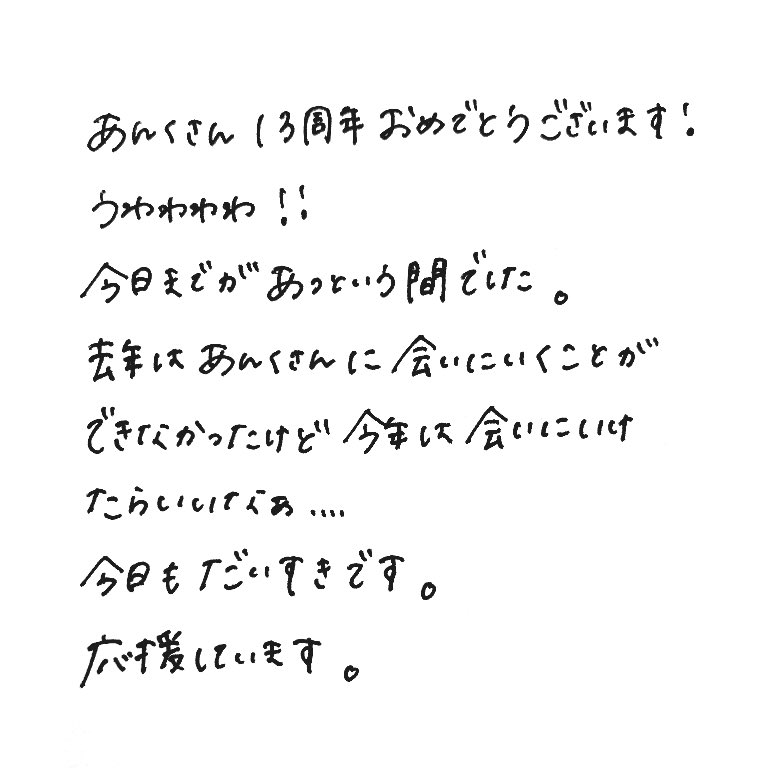 あんくさん 13周年 おめでとうございます!
うわわわわ!!
今日までがあっという間でした。
去年は あんくさんに 会いにいくことが
できなかったけど 今年は 会いにいけ
たらいいなぁ....
今日も だいすきです。
応援しています。